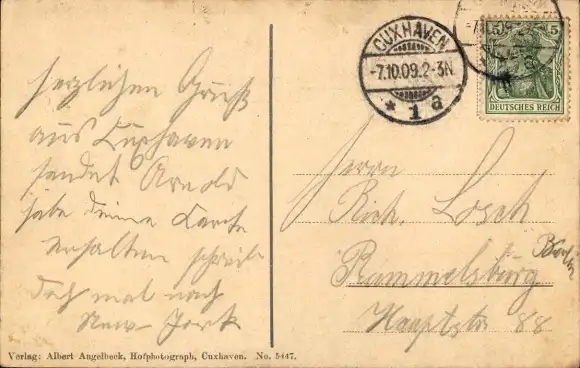 herzlichen Gruß
aus Cuxhaven
sendet Arnold
habe deine Karte
erhalten schreib
doch mal nach
New-York
Verlag: Albert Angelbeck, Hofphotograph, Cuxhaven. No. 5447.
CUXHAVEN
-7.10.09.2-3N
* 1 a
5 5
DEUTSCHES REICH
Herrn
Rich. Losch
Berlin
Rummelsburg
Hauptstr 88